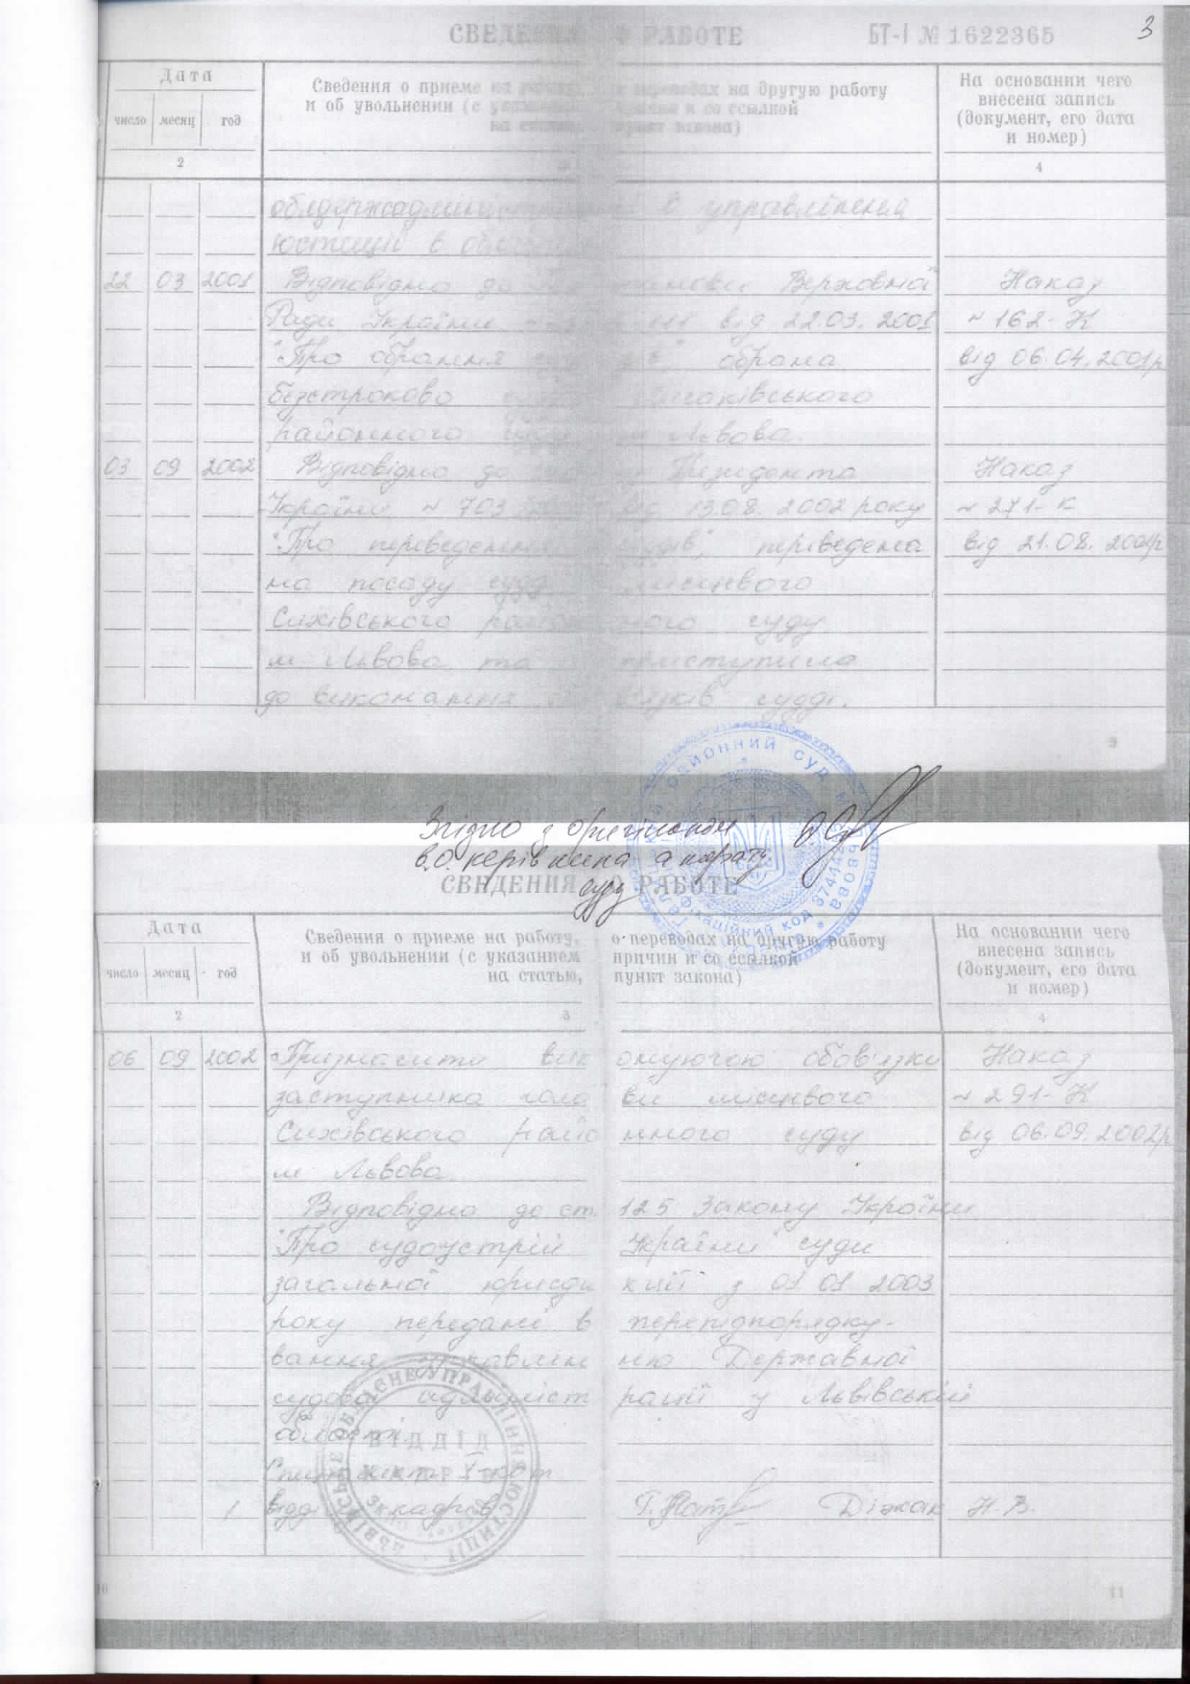 3
СВЕДЕНИЯ О РАБОТЕ БТ-I № 1622365
Дата
число месяц год
Сведения о приеме на работу, переводах на другую работу
и об увольнении (с указанием причин и со ссылкой
на статью, пункт закона)
На основании чего
внесена запись
(документ, его дата
и номер)
2 3 4
облдержадміністрації в управління
юстиції в області
22 03 2001 Відповідно до Постанови Верховної Наказ
Ради України від 22.03.2001 № 162-К
"Про обрання суддів" обрана від 06.04.2001р
безстроково
районного суду м Львова.
03 09 2002 Відповідно до Указу Президента Наказ
України № 703 від 13.08.2002 року № 271-к
"Про переведення суддів", переведена від 21.08.
на посаду судді місцевого
Сихівського районного суду
м Львова та приступила
до виконання обов'язків судді.
9
РАЙОННИЙ СУД М. ЛЬВОВА
Ідентифікаційний код
Згідно з оригіналом
в.о. керівника апарату
суду
СВЕДЕНИЯ О РАБОТЕ
Дата
число месяц год
Сведения о приеме на работу, о переводах на другую работу
и об увольнении (с указанием причин и со ссылкой
на статью, пункт закона)
На основании чего
внесена запись
(документ, его дата
и номер)
2 3 4
06 09 2002 Призначити виконуючою обов'язки Наказ
заступника голови місцевого № 291-К
Сихівського районного суду від 06.09.2002р
м Львова
Відповідно до ст. 125 Закону України
"Про судоустрій України" суди
загальної юрисдикції з 01 01 2003
року передані в перепідпорядку-
вання управлінню Державної
судової адміністрації у Львівській
області.
Спеціаліст
відділу кадрів Діжак Н.В.
ЛЬВІВСЬКЕ ОБЛАСНЕ УПРАВЛІННЯ ЮСТИЦІЇ
ВІДДІЛ
КАДРІВ
10 11